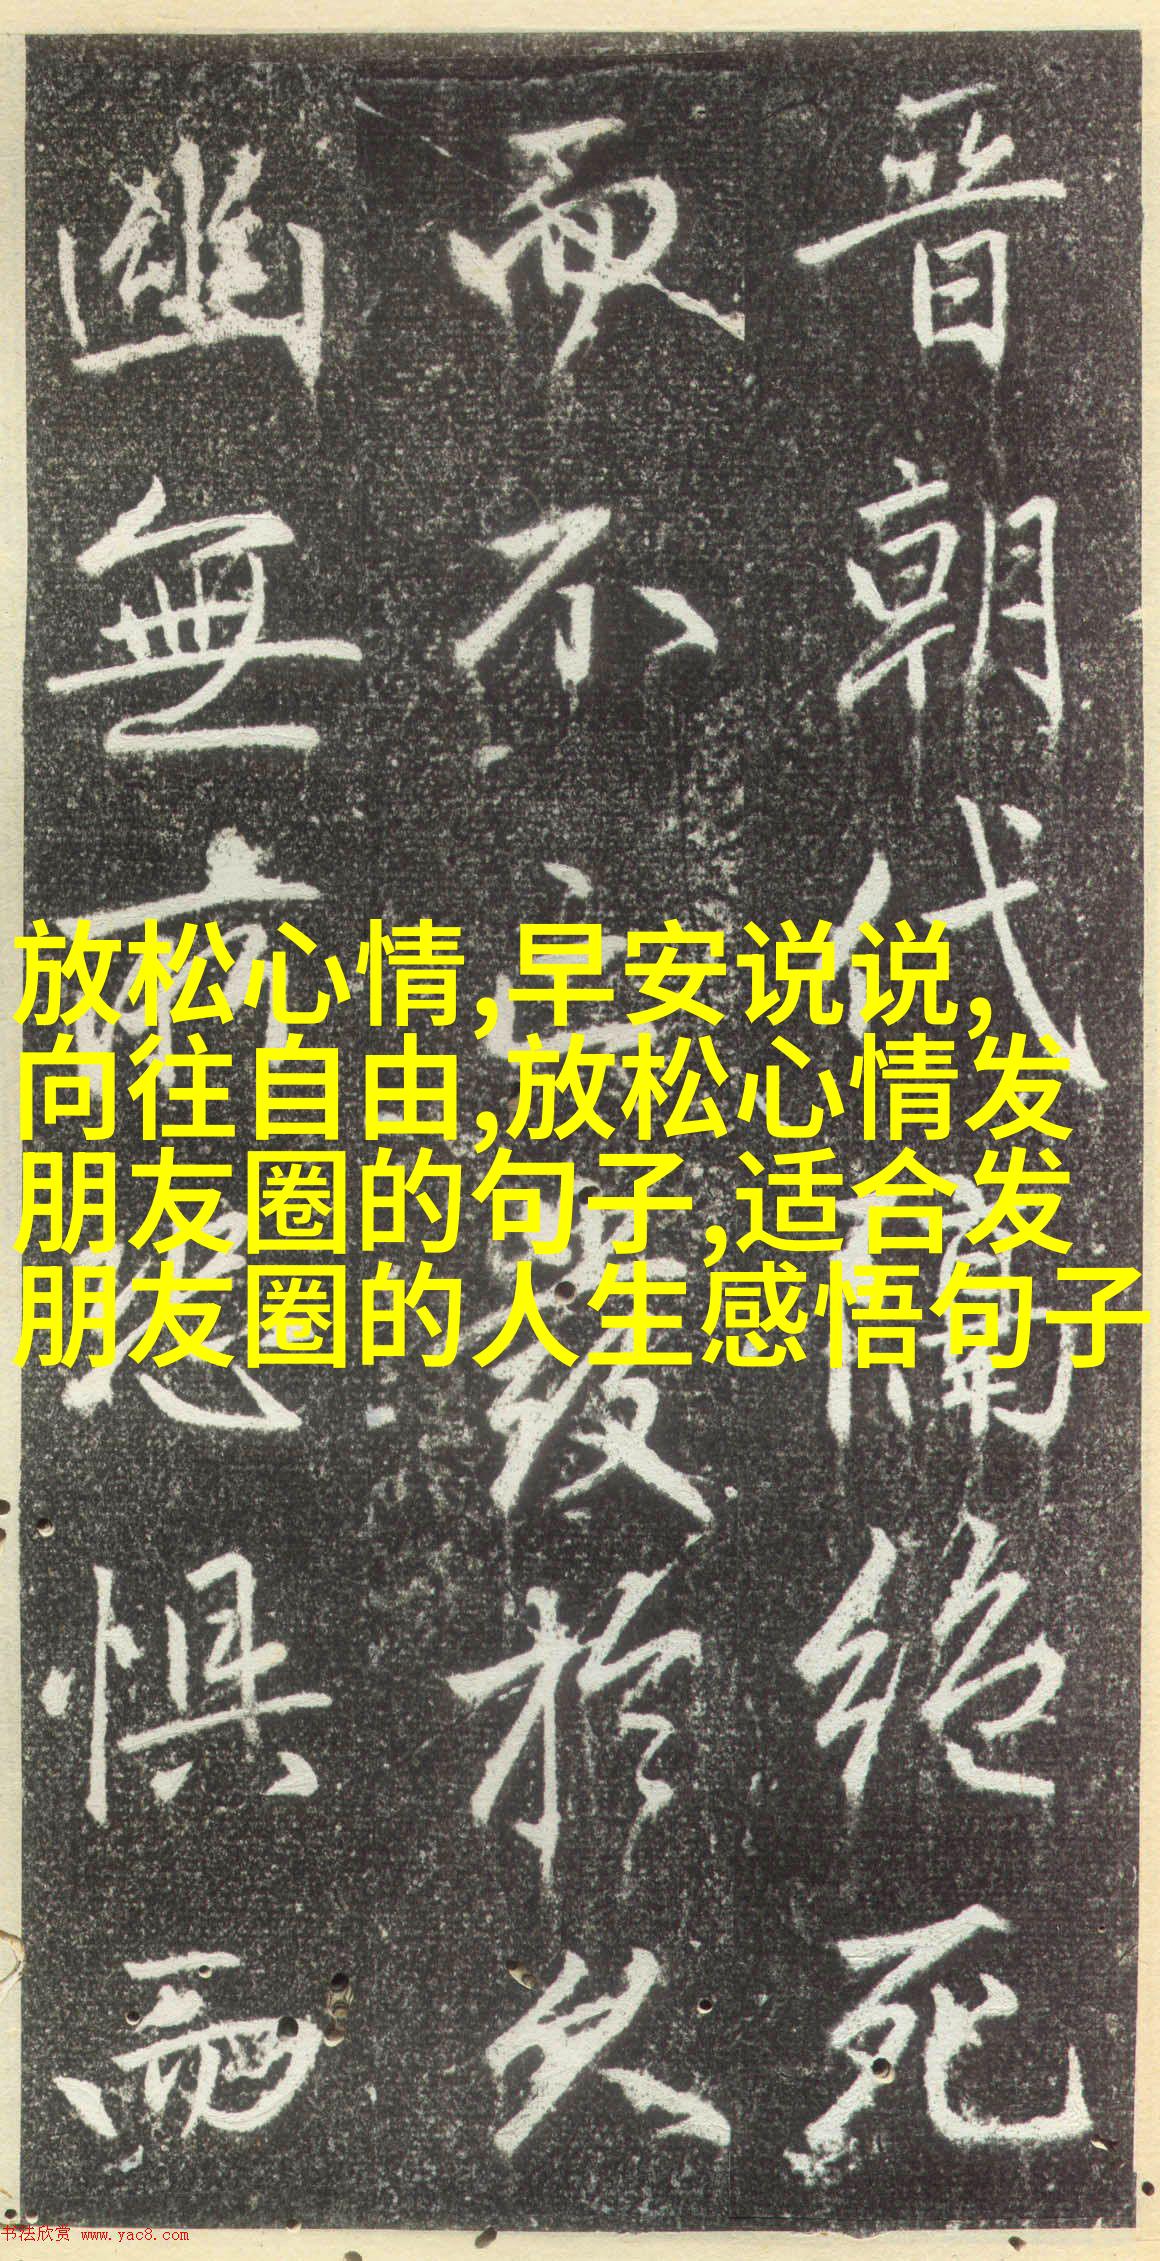 晋朝代絶死
而不發於久
幽無所恐惧而
放松心情,早安说说,
向往自由,放松心情发
朋友圈的句子,适合发
朋友圈的人生感悟句子
书法欣赏 www.yac8.com